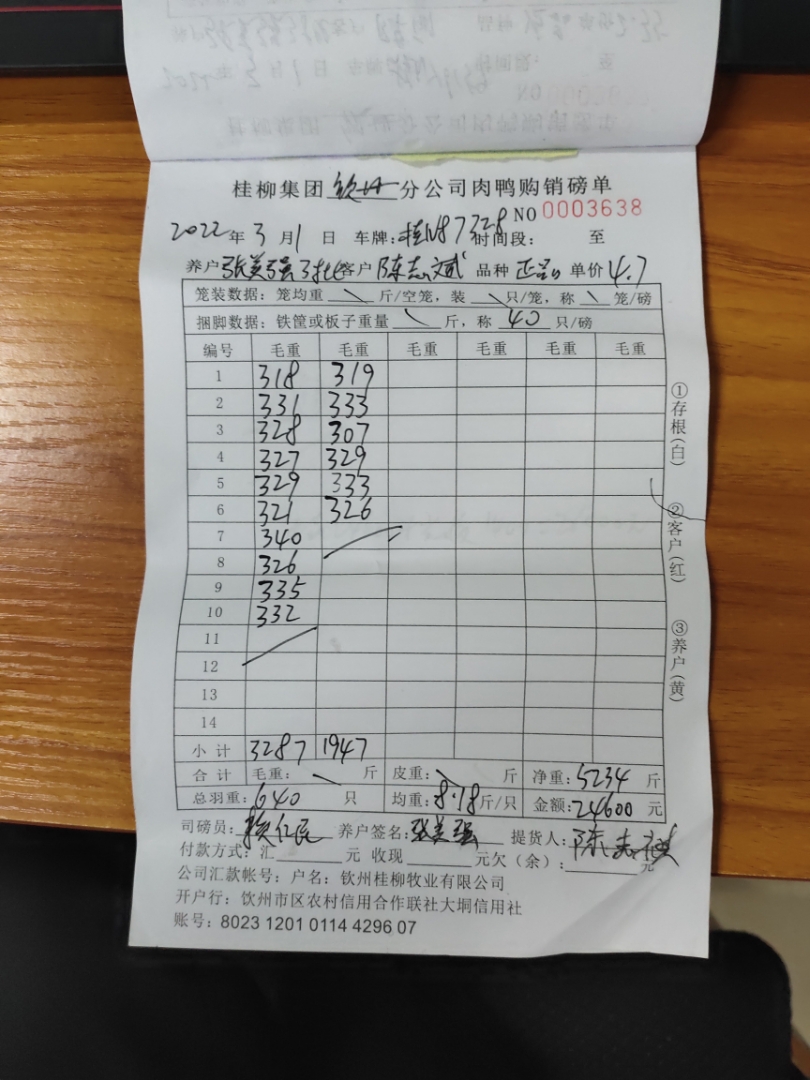 桂柳集团 钦州 分公司肉鸭购销磅单
NO 0003638
2022 年 3 月 1 日 车牌:桂N87328 时间段: 至
养户 张美强3批 客户 陈志斌 品种 正品 单价 4.7
笼装数据:笼均重 \ 斤/空笼,装 \ 只/笼,称 \ 笼/磅
捆脚数据:铁筐或板子重量 \ 斤,称 40 只/磅
编号 毛重 毛重 毛重 毛重 毛重 毛重
1 318 319
2 331 333
3 328 307
4 327 329
5 329 333
6 321 326
7 340
8 326
9 335
10 332
11
12
13
14
小计 3287 1947
合计 毛重: \ 斤 皮重: \ 斤 净重:5234 斤
总羽重:640 只 均重:8.18 斤/只 金额:24600 元
司磅员: 仁民 养户签名:张美强 提货人:陈志斌
付款方式:汇 元 收现 元欠(余): 元
公司汇款帐号:户名:钦州桂柳牧业有限公司
开户行:钦州市区农村信用合作联社大垌信用社
账号:8023 1201 0114 4296 07
①存根(白)
②客户(红)
③养户(黄)